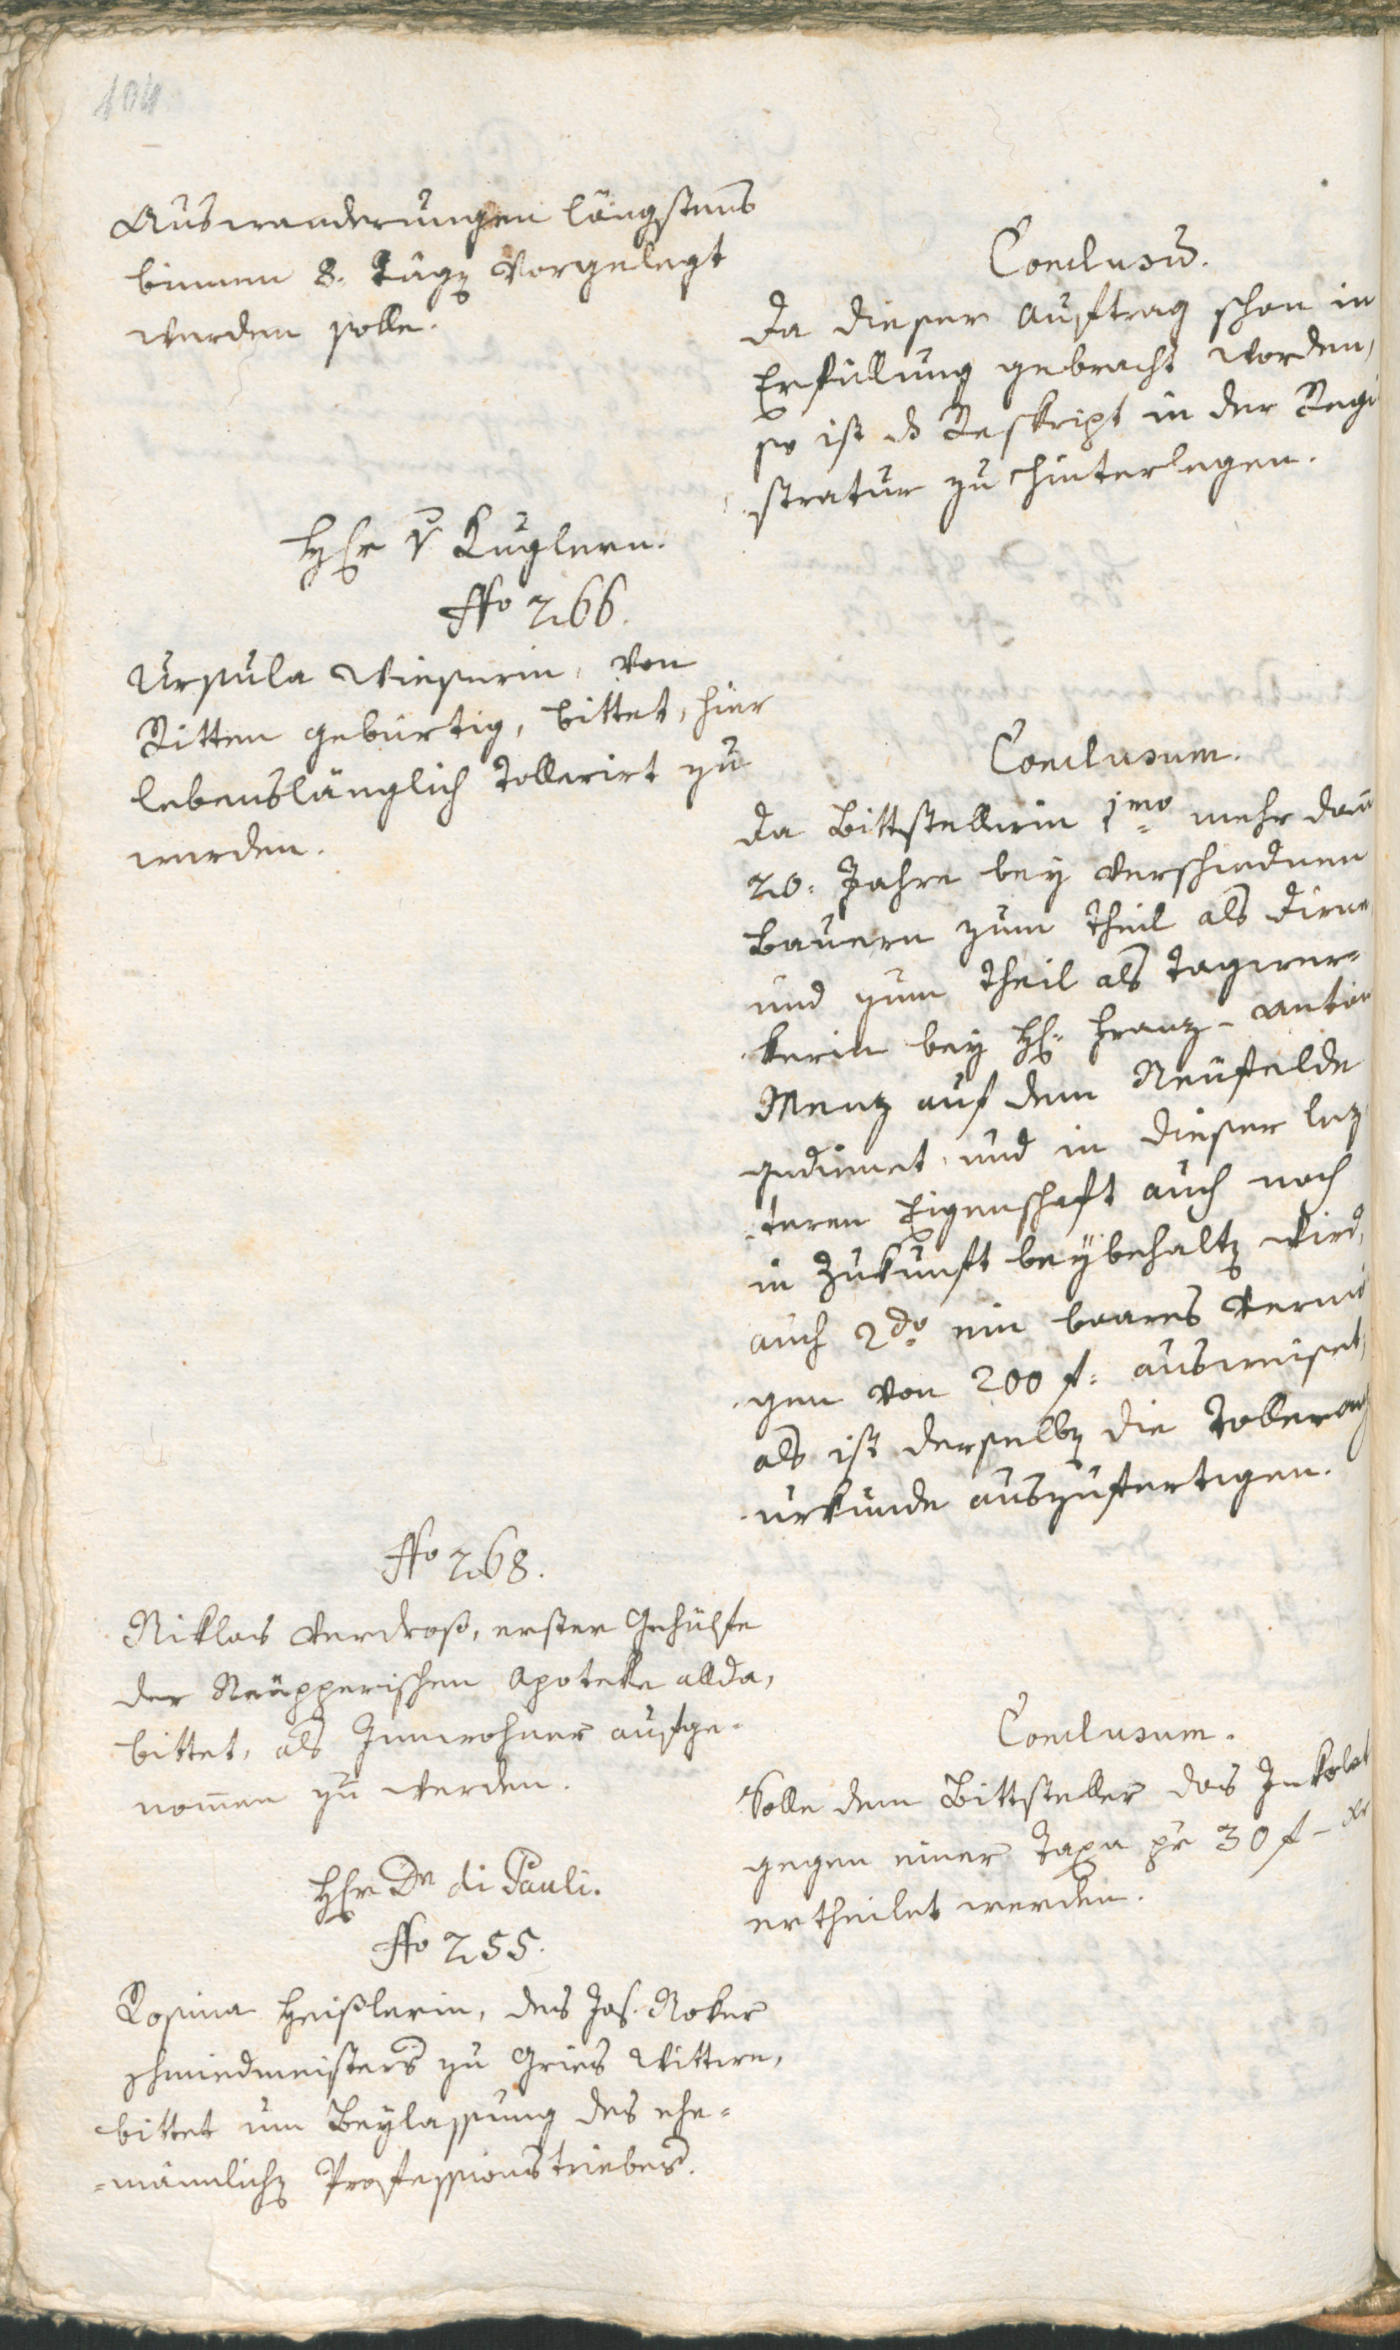 104
Auswanderungen längstens
binnen 8. Tägen vorgelegt
werden solle.
Conclusum.
Da dieser Auftrag schon in
Erfüllung gebracht worden,
so ist das Reskript in der Regi
stratur zu hinterlegen.
Herr v Kuglern.
No 266.
Ursula Wieserin, von
Ritten gebürtig, bittet, hier
lebenslänglich tollerirt zu
werden.
Conclusum.
Da Bittstellerin 1mo mehr dann
20. Jahre bey verschiednen
Bauern zum Theil als Dirne
und zum Theil als Tagwer=
kerin bey H: Franz-Anton
Menz auf dem Neufelde
gedienet, und in dieser lez
teren Eigenschaft auch noch
in Zukunft beybehalten wird,
auch 2do ein baares Vermö
gen von 200 f: ausweiset,
als ist derselben die Tolleranz
urkunde auszufertigen.
No 268.
Niklas Verdroß, erster Gehülfe
der Apoteke allda,
bittet, als Innwohner aufge=
nomen zu werden.
Conclusum.
Solle dem Bittsteller das Inkolat
gegen einer Taxa pr 30 f – xr
ertheilet werden.
Herr Dr di Pauli.
No 255.
Rosina Heißlerin, des Jos. Noker
schmiedmeisters zu Gries Wittwe,
bittet um Beylassung des ehe=
=männlichen Professionstriebes.